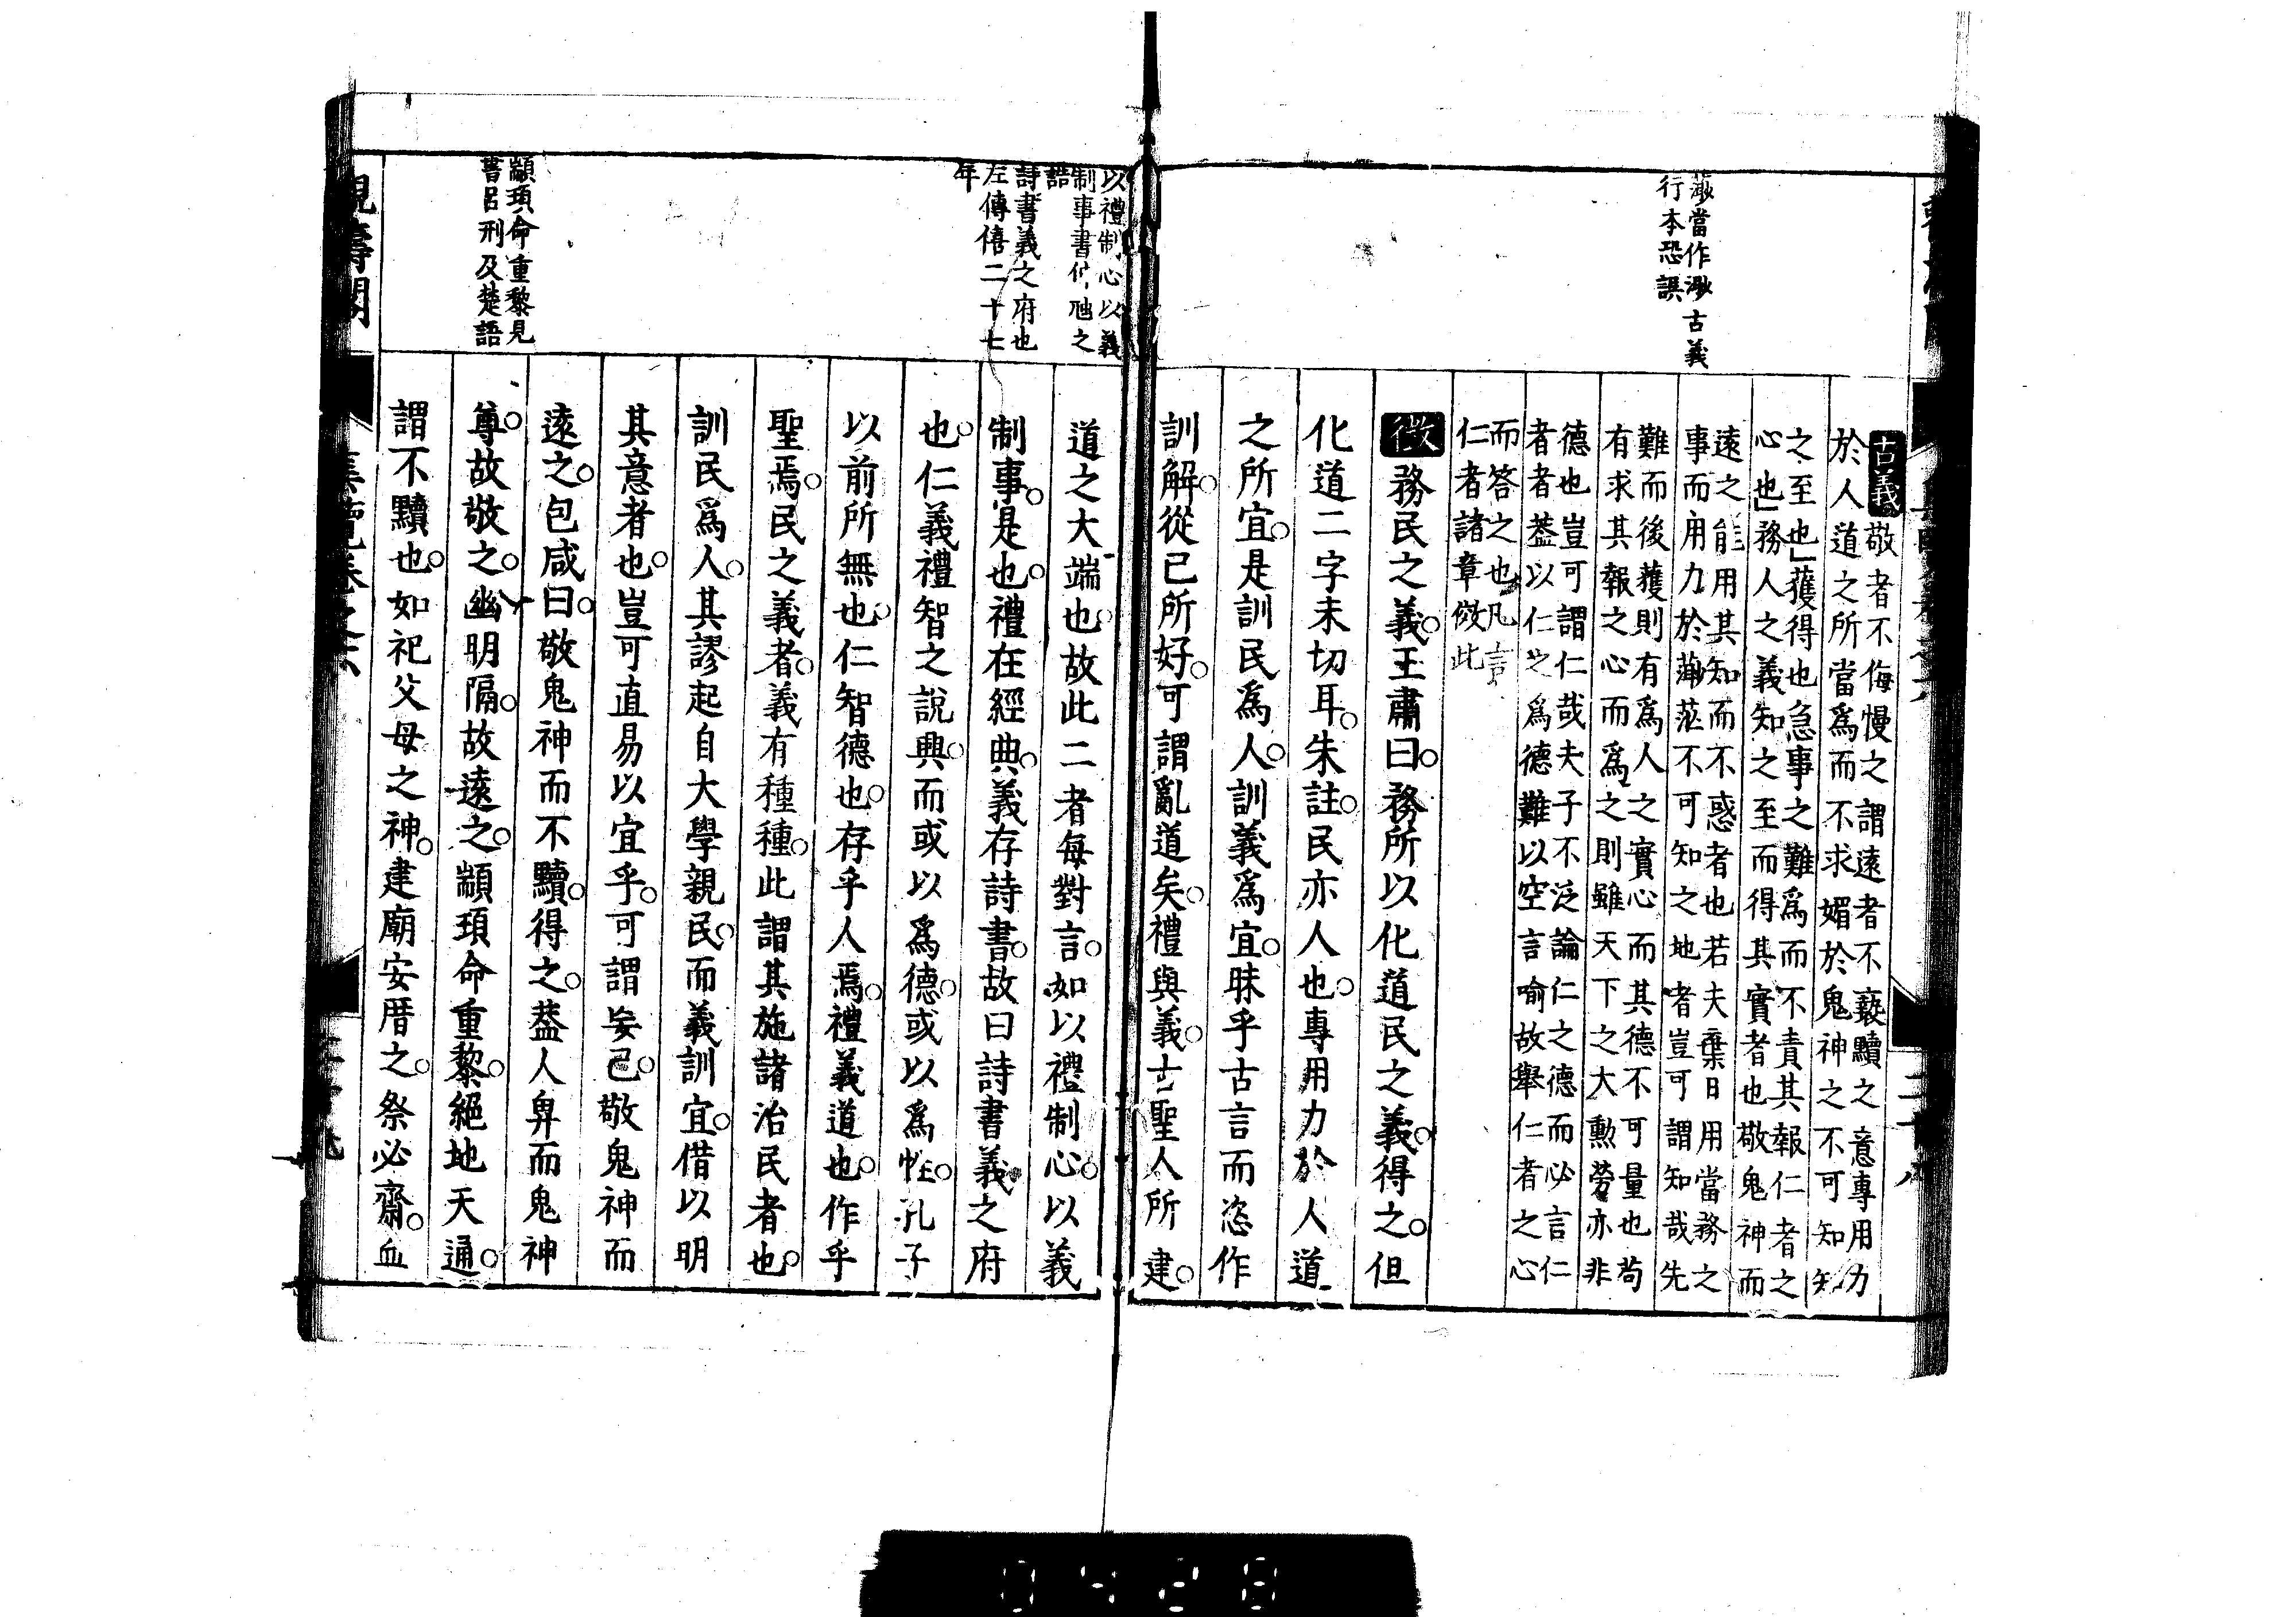 當作渺古義
行本恐誤
古義敬者不侮慢之謂遠者不褻黷之意專用力
於人道之所當爲而不求媚於鬼神之不可知知
之至也」獲得也急事之難爲而不責其報仁者之
心也」務人之義知之至而得其實者也敬鬼神而
遠之能用其知而不惑者也若夫棄日用當務之
事而用力於茫不可知之地者豈可謂知哉先
難而後獲則有爲人之實心而其德不可量也苟
有求其報之心而爲之則雖天下之大勳勞亦非
德也豈可謂仁哉夫子不泛論仁之德而必言仁
者者葢以仁之爲德難以空言喻故舉仁者之心
而答之也凡言
仁者諸章傚此
徴務民之義。王肅曰。務所以化道民之義。得之。但
化道二字未切耳。朱註。民亦人也。專用力於人道
之所宜。是訓民爲人。訓義爲宜。昧乎古言而恣作
訓解。從己所好。可謂亂道矣。禮與義。古聖人所建。
以禮制心以義
制事書仲虺之
誥
詩書義之府也
左傳僖二十七
年
道之大端也。故此二者每對言。如以禮制心。以義
制事。是也。禮在經典。義存詩書。故曰詩書義之府
也。仁義禮智之說興。而或以爲德。或以爲性。孔子
以前所無也。仁智德也。存乎人焉。禮義道也。作乎
聖焉。民之義者。義有種種。此謂其施諸治民者也。
訓民爲人。其謬起自大學親民。而義訓宜。借以明
其意者也。豈可直易以宜乎。可謂妄已。敬鬼神而
遠之。包咸曰。敬鬼神而不黷。得之。葢人卑而鬼神
尊。故敬之。幽明隔。故遠之。顓頊命重黎。絕地天通。
謂不黷也。如祀父母之神。建廟安厝之。祭必齋。血
顓頊命重黎見
書呂刑及楚語